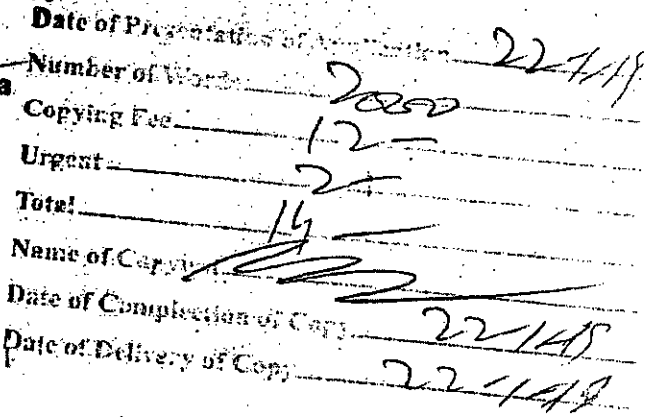 Date of Presentation of Application 22-1-19
Number of Words 2000
Copying Fee 12-
Urgent 2-
Total 14-
Name of Copyist
Date of Complection of Copy 22-1-19
Date of Delivery of Copy 22-1-19